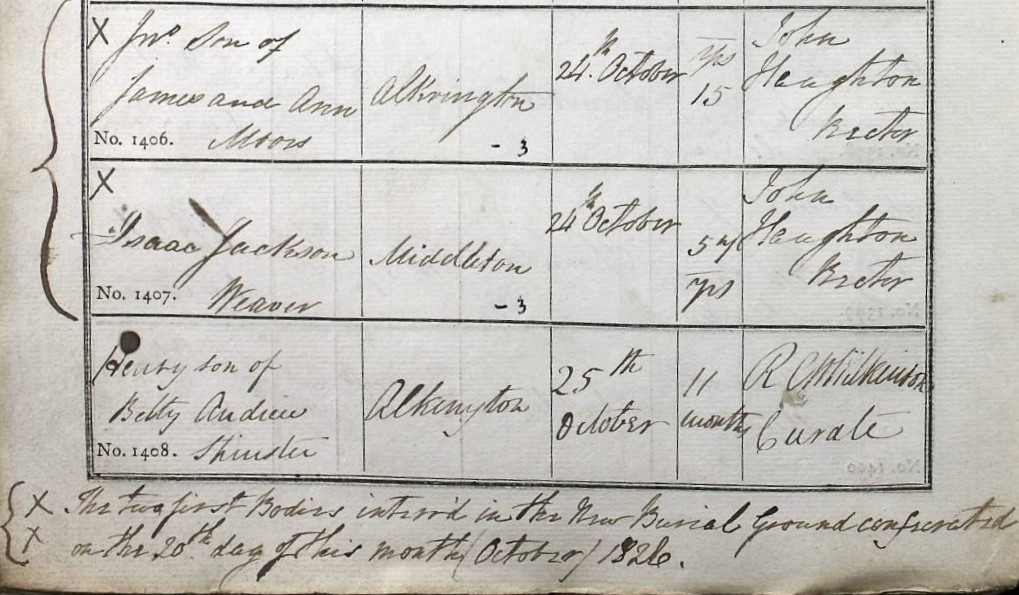 X Jnº Son of
James and Ann
No. 1406. Moors
Alkrington
- 3
24.th October
yrs
15
John
Haughton
Rector
X
Isaac Jackson
No. 1407. Weaver
Middleton
- 3
24th October
57
yrs
John
Haughton
Rector
Henry son of
Betty Andrew
No. 1408. Spinster
Alkington
25th
October
11
months
R Wilkinson
Curate
X The two first Bodies interr'd in the New Burial Ground consecrated
X on the 20.th day of this month (October) 1826.